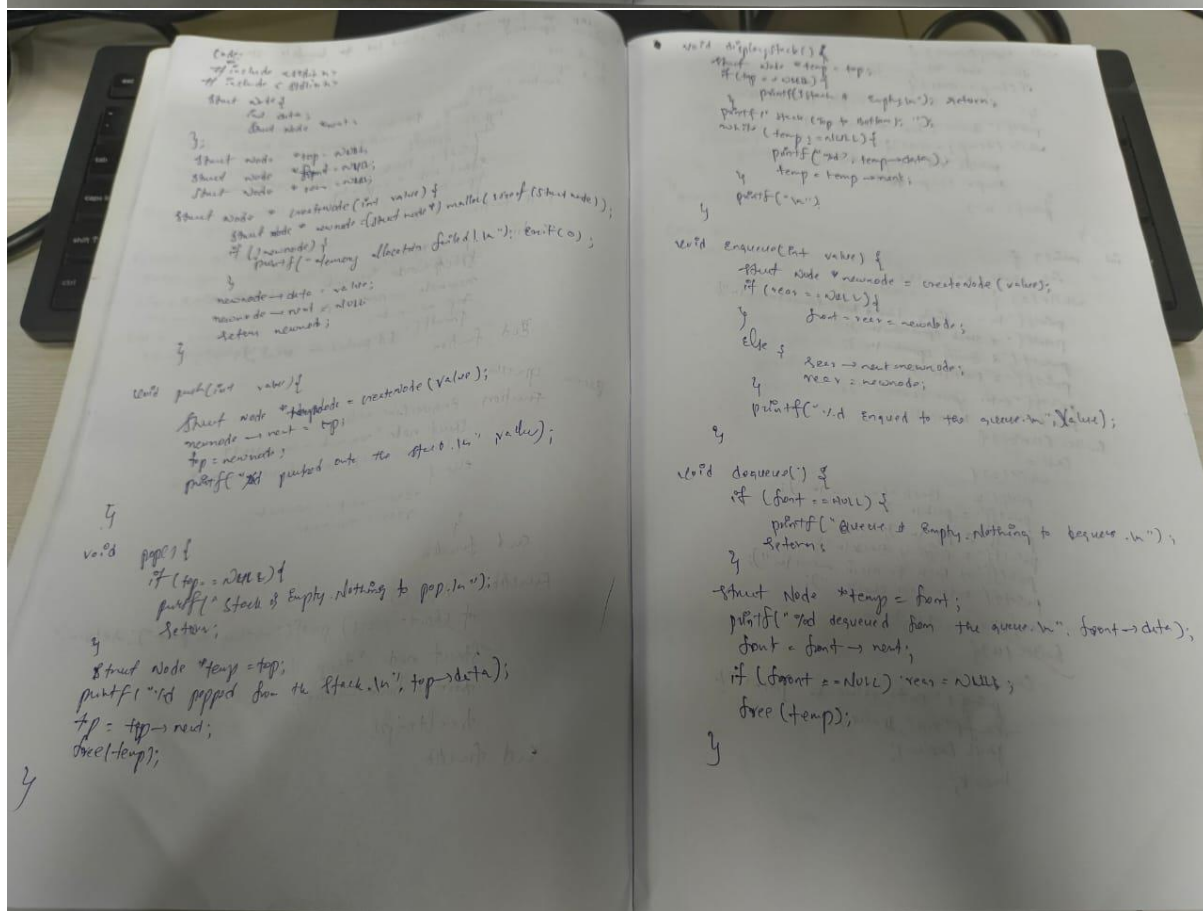 Code:
# include <stdio.h>
# include <stdlib.h>
struct Node {
int data;
struct Node *next;
};
struct Node *top = NULL;
struct Node *front = NULL;
struct Node *rear = NULL;
struct Node * createNode (int value) {
struct Node * newnode = (struct node*) malloc (sizeof (struct node));
if (!newnode) {
printf ("Memory allocation failed.\n"); exit(0);
}
newnode → data = value;
newnode → next = NULL
return newnode;
}
void push(int value) {
struct Node *newnode = createNode (value);
newnode → next = top;
top = newnode;
printf(" %d pushed onto the stack.\n", value);
}
void pop() {
if (top == NULL) {
printf(" Stack is Empty. Nothing to pop.\n");
return;
}
struct Node *temp = top;
printf(" %d popped from the stack.\n", top→data);
top = top → next;
free(temp);
}
void displayStack() {
struct Node *temp = top;
if (top == NULL) {
printf("Stack is Empty\n"); return;
}
printf(" Stack (top to bottom): ");
while (temp != NULL) {
printf("%d", temp→data);
temp = temp → next;
}
printf("\n")
}
void Enqueue(int value) {
struct Node *newnode = createNode (value);
if (rear == NULL) {
front = rear = newnode;
}
else {
rear → next = newnode;
rear = newnode;
}
printf("%d Enqued to the queue.\n", value);
}
void dequeue() {
if (front == NULL) {
printf("Queue is Empty. Nothing to dequeue.\n");
return;
}
struct Node *temp = front;
printf(" %d dequeued from the queue.\n". front → data);
front = front → next;
if (front == NULL) rear = NULL;
free (temp);
}